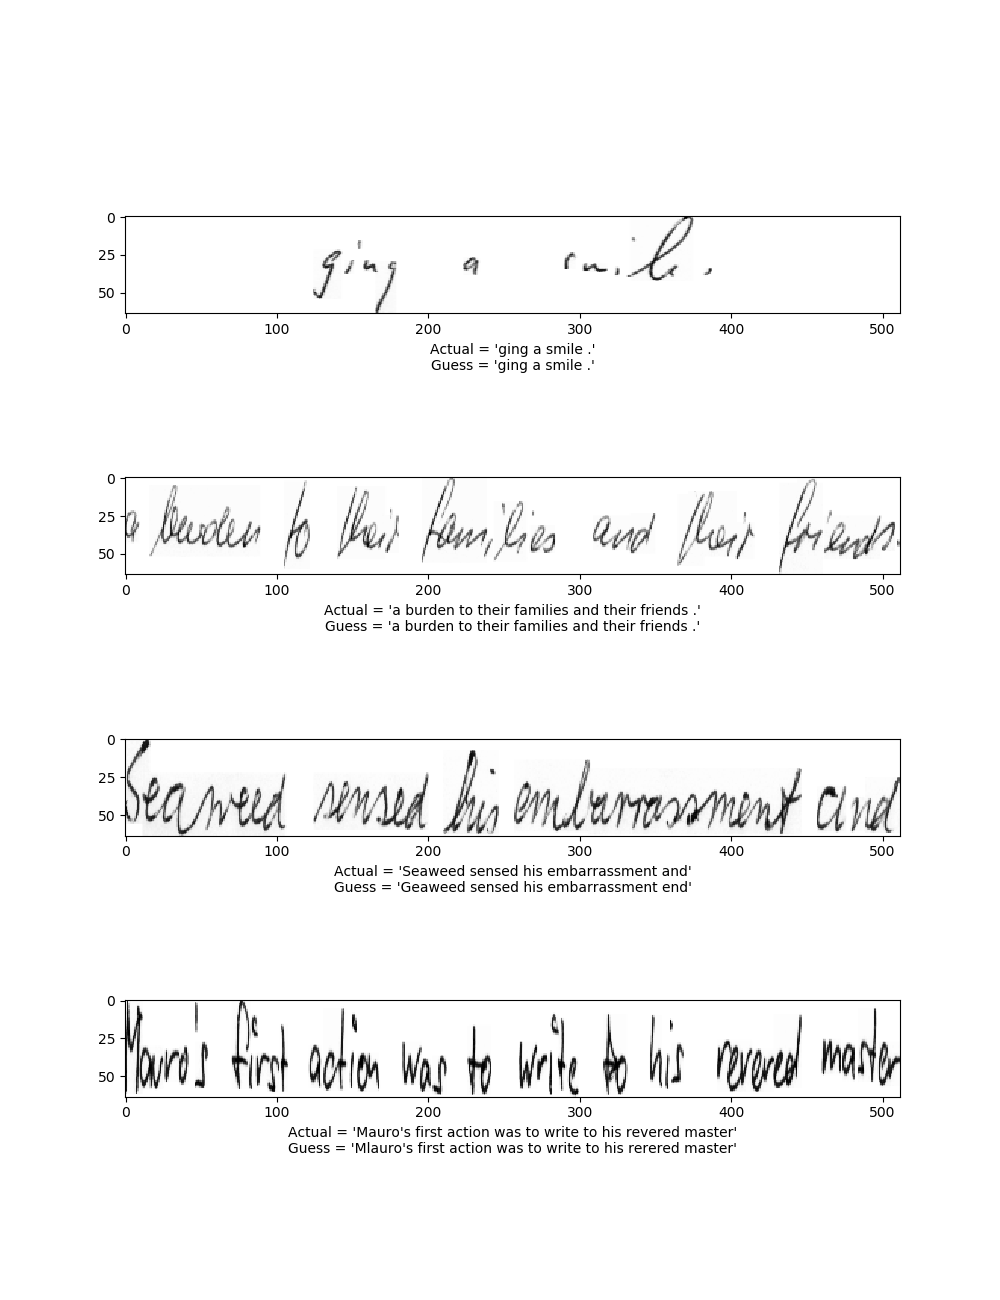 0
25
50
ging a smile .
0 100 200 300 400 500
Actual = 'ging a smile .'
Guess = 'ging a smile .'
0
25
50
a burden to their families and their friends.
0 100 200 300 400 500
Actual = 'a burden to their families and their friends .'
Guess = 'a burden to their families and their friends .'
0
25
50
Seaweed sensed his embarrassment and
0 100 200 300 400 500
Actual = 'Seaweed sensed his embarrassment and'
Guess = 'Geaweed sensed his embarrassment end'
0
25
50
Mauro's first action was to write to his revered master
0 100 200 300 400 500
Actual = 'Mauro's first action was to write to his revered master'
Guess = 'Mlauro's first action was to write to his rerered master'